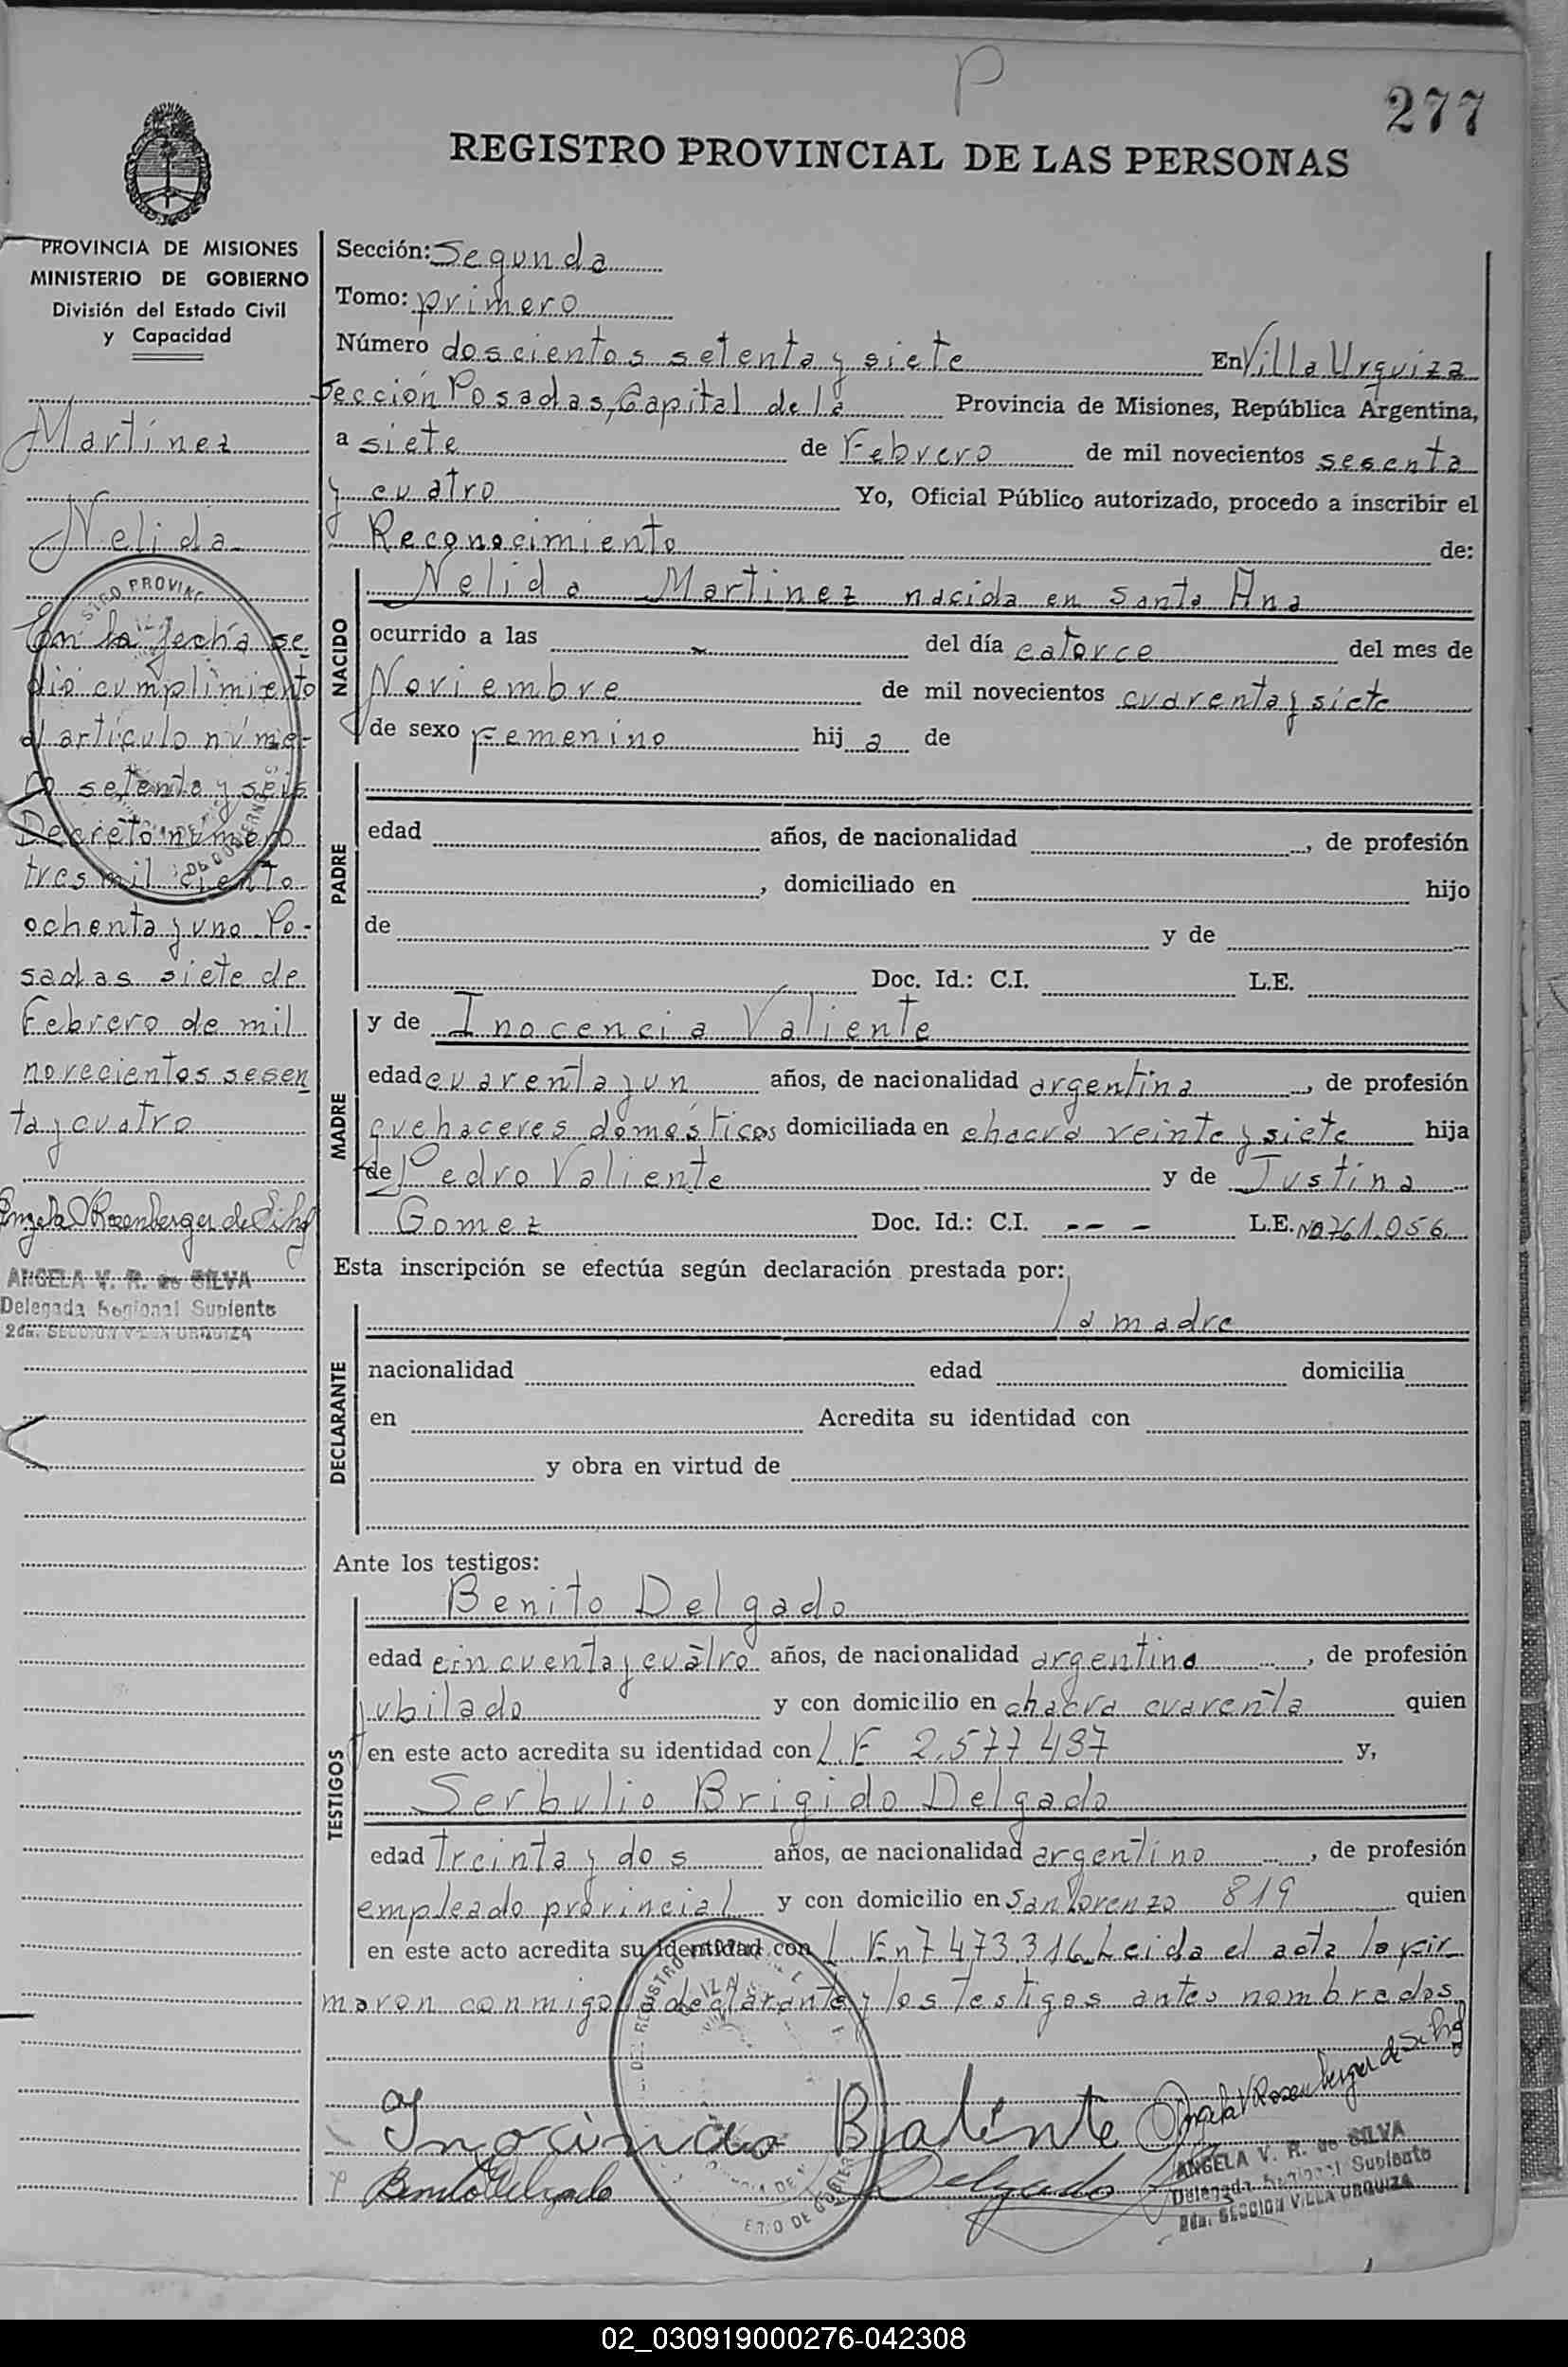 P
277
REGISTRO PROVINCIAL DE LAS PERSONAS
PROVINCIA DE MISIONES
MINISTERIO DE GOBIERNO
División del Estado Civil
y Capacidad
Martínez
Nelida
En la fecha se
dió cumplimiento
al artículo núme-
ro setenta y seis
Decreto número
tres mil ciento
ochenta y uno Po-
sadas siete de
Febrero de mil
novecientos sesen
ta y cuatro
Angela V Rosenberger de Silva
ANGELA V. R. de SILVA
Delegada Regional Suplente
2da. SECCION VILLA URQUIZA
Sección: Segunda
Tomo: primero
Número doscientos setenta y siete En Villa Urquiza
Sección Posadas, Capital de la Provincia de Misiones, República Argentina,
a siete de Febrero de mil novecientos sesenta
y cuatro Yo, Oficial Público autorizado, procedo a inscribir el
Reconocimiento de:
NACIDO
Nelida Martinez nacida en Santa Ana
ocurrido a las del día catorce del mes de
Noviembre de mil novecientos cuarenta y siete
de sexo Femenino hij a de
PADRE
edad años, de nacionalidad , de profesión
, domiciliado en hijo
de y de
Doc. Id.: C.I. L.E.
MADRE
y de Inocencia Valiente
edad cuarenta y un años, de nacionalidad argentina , de profesión
quehaceres domésticos domiciliada en chacra veinte y siete hija
de Pedro Valiente y de Justina
Gomez Doc. Id.: C.I. -- - L.E. No 761.056
Esta inscripción se efectúa según declaración prestada por:
DECLARANTE
la madre
nacionalidad edad domicilia
en Acredita su identidad con
y obra en virtud de
Ante los testigos:
TESTIGOS
Benito Delgado
edad cincuenta y cuatro años, de nacionalidad argentino , de profesión
jubilado y con domicilio en chacra cuarenta quien
en este acto acredita su identidad con L.E 2.577 437 y,
Serbulio Brigido Delgado
edad treinta y dos años, de nacionalidad argentino , de profesión
empleado provincial y con domicilio en San Lorenzo 819 quien
en este acto acredita su identidad con L. E n 7 473.316 Leida el acta la fir-
maron conmigo la declarante y los testigos antes nombrados
Inocincia Balente
Angela V Rosenberger de Silva
Benito Delgado
Delgado
ANGELA V. R. de SILVA
Delegada Regional Suplente
2da. SECCION VILLA URQUIZA
02_030919000276-042308